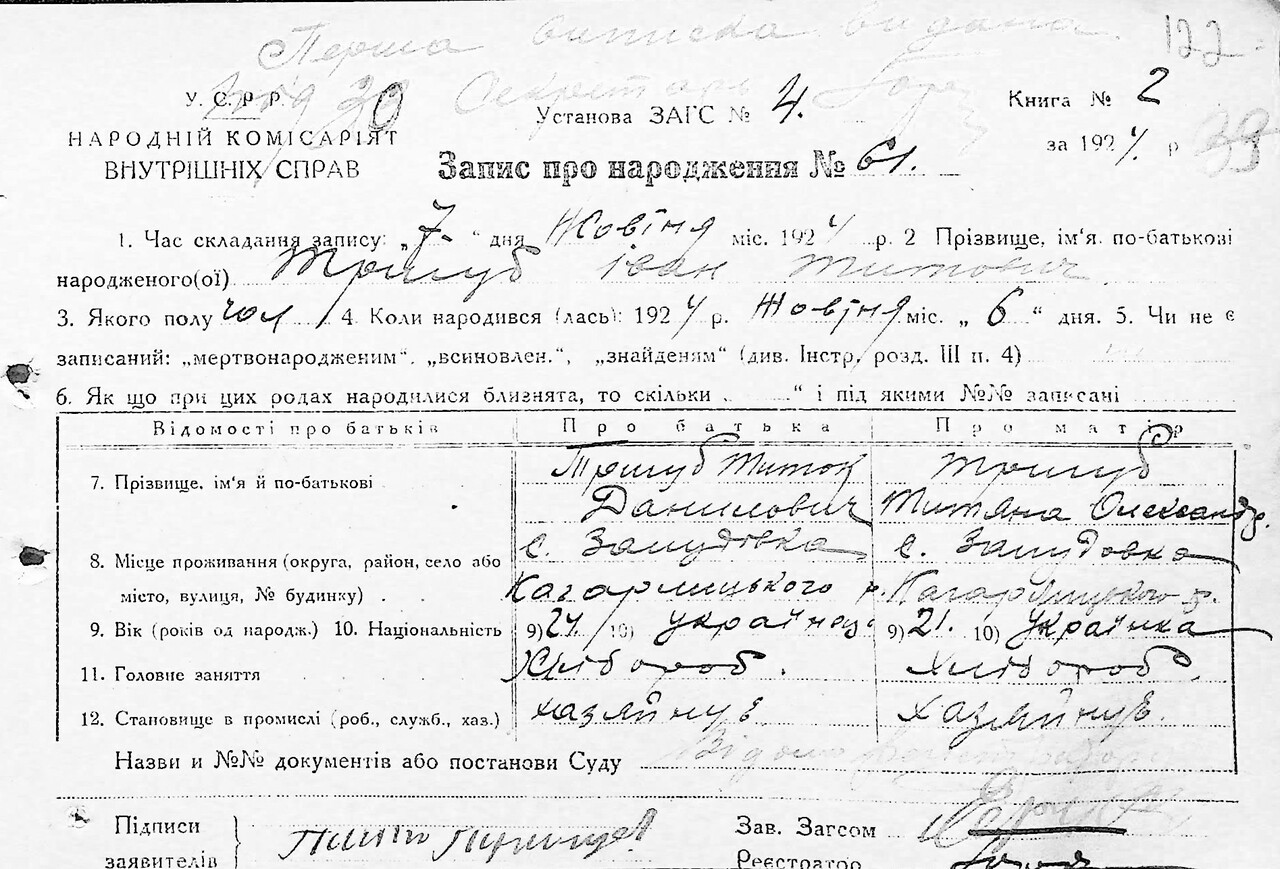 Перша виписка видана 122
У. С. Р. Р. 30 Секретар
Установа ЗАГС № 4. Книга № 2
НАРОДНІЙ КОМІСАРІЯТ за 1924. р 39
ВНУТРІШНІХ СПРАВ Запис про народження № 61.
1. Час складання запису: „7" дня Жовтня міс. 1924 р. 2 Прізвище, ім'я. по-батькові
народженого(ої) Тригуб Іван Титович
3. Якого полу чол 4. Коли народився (лась): 1924 р. Жовтня міс. „ 6 " дня. 5. Чи не є
записаний: „мертвонародженим". „всиновлен.", „знайденям" (див. Інстр. розд. III п. 4)
6. Як що при цих родах народилися близнята, то скільки " і під якими №№ записані
Відомості про батьків Про батька Про матір
7. Прізвище, ім'я й по-батькові Тригуб Титок Тригуб
Данилович Титяна Олександр.
8. Місце проживання (округа, район, село або с. Замудовка с. Замудовка
місто, вулиця, № будинку) Кагарлицького р. Кагарлицького р.
9. Вік (років од народж.) 10. Національність 9) 24 10) українец 9) 21. 10) Українка
11. Головне заняття Хлібороб. Хлібороб.
12. Становище в промислі (роб., служб., хаз.) хазяйнує Хазяйнує.
Назви и №№ документів або постанови Суду
Підписи Зав. Загсом
заявителів Реєстратор